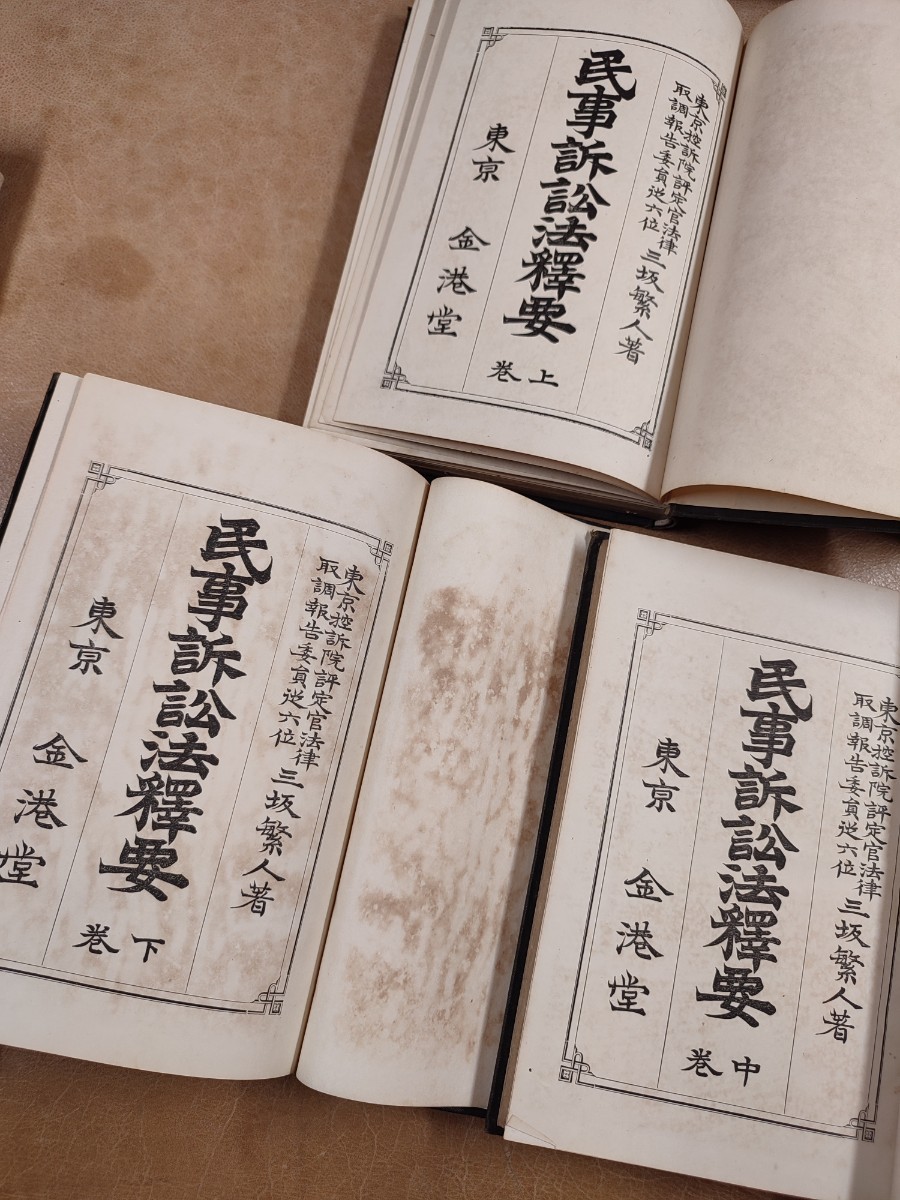 東京控訴院評定官法律
取調報告委員従六位
三坂繁人著
民事訴訟法釋要
上巻
東京 金港堂
東京控訴院評定官法律
取調報告委員従六位
三坂繁人著
民事訴訟法釋要
下巻
東京 金港堂
東京控訴院評定官法律
取調報告委員従六位
三坂繁人著
民事訴訟法釋要
中巻
東京 金港堂